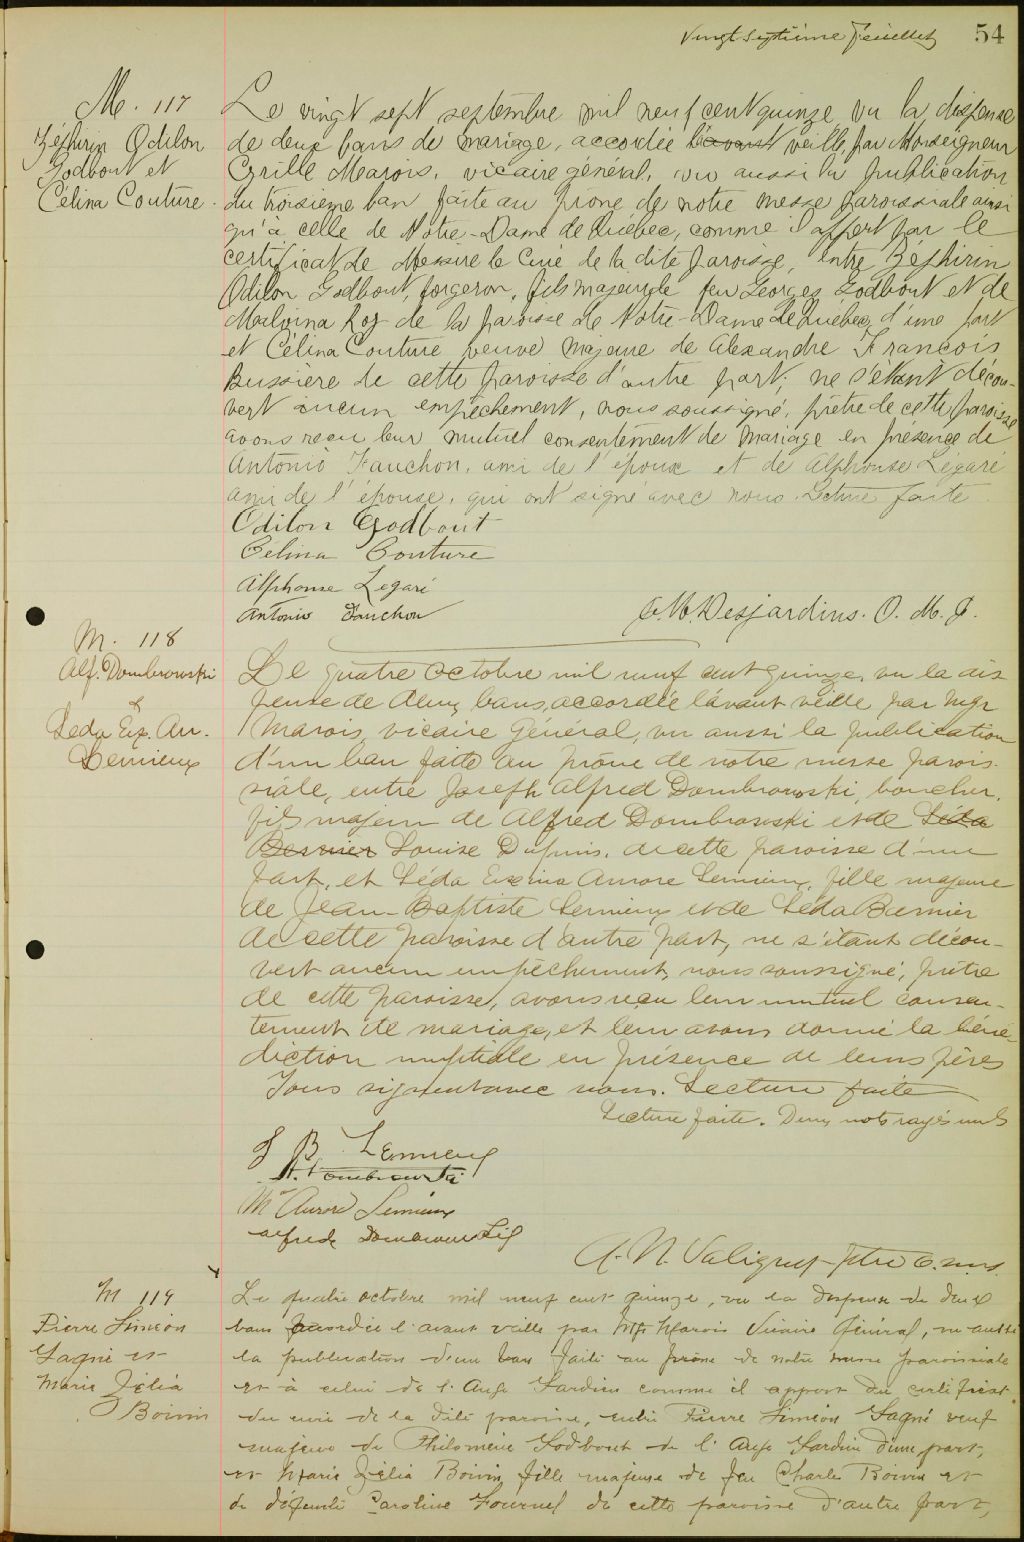 Vingt-septième feuillet 54
M. 117
Zéphirin Odilon
Godbout et
Célina Couture.
Le vingt sept septembre mil neuf cent quinze vu la dispense
de deux bans de mariage, accordée l'avant veille, par Monseigneur
Cyrille Marois, vicaire général, vu aussi la publication
du troisième ban faite au prône de notre messe paroissiale ainsi
qu'à celle de Notre-Dame de Québec, comme il appert par le
certificat de Messire le Curé de la dite paroisse, entre Zéphirin
Odilon Godbout, forgeron, fils majeur de feu Georges Godbout et de
Malvina Roy de la paroisse de Notre-Dame de Québec, d'une part
et Célina Couture veuve majeure de Alexandre François
Bussière de cette paroisse d'autre part; ne s'étant décou-
vert aucun empêchement, nous soussigné, prêtre de cette paroisse
avons reçu leur mutuel consentement de mariage en présence de
Antonio Fauchon, ami de l'époux et de Alphonse Légaré
ami de l'épouse, qui ont signé avec nous. Lecture faite
Odilon Godbout
Célina Couture
Alphonse Legaré
Antonio Fauchon
Desjardins. O. M. I.
M. 118
Alf. Dombrowski
&
Léda Ex. Au.
Lemieux
Le quatre octobre mil neuf cent quinze, vu la dis
pense de deux bans, accordée l'avant veille par Mgr
Marois, vicaire Général, vu aussi la publication
d'un ban faite au prône de notre messe parois-
siale, entre Joseph Alfred Dombrowski, boucher,
fils majeur de Alfred Dombrowski et de Léda
Bernier Louise Dupuis, de cette paroisse d'une
part, et Léda Exerina Aurore Lemieux, fille majeure
de Jean-Baptiste Lemieux et de Léda Bernier
de cette paroisse d'autre part, ne s'étant décou-
vert aucun empêchement, nous soussigné, prêtre
de cette paroisse, avons reçu leur mutuel consen-
tement de mariage, et leur avons donné la béné-
diction nuptiale en présence de leurs pères
Tous signent avec nous. Lecture faite
Lecture faite. Deux mots rayés nuls
J B Lemieux
A. Dombrowski
Aurore Lemieux
Alfred Dombrowski
A. N. Valiquet ptre o.m.i.
M 119
Pierre Siméon
Gagné et
Marie Zélia
Boivin
Le quatre octobre mil neuf cent quinze, vu la dispense de deux
bans accordée l'avant veille par Mgr Marois Vicaire Général, vu aussi
la publication d'un ban faite au prône de notre messe paroissiale
et à celui de l'Ange Gardien comme il appert du certificat
du curé de la dite paroisse, entre Pierre Siméon Gagné veuf
majeur de Philomène Godbout de l'Ange Gardien d'une part,
et Marie Zélia Boivin, fille majeure de feu Charles Boivin et
de défunte Caroline Fournel de cette paroisse d'autre part,